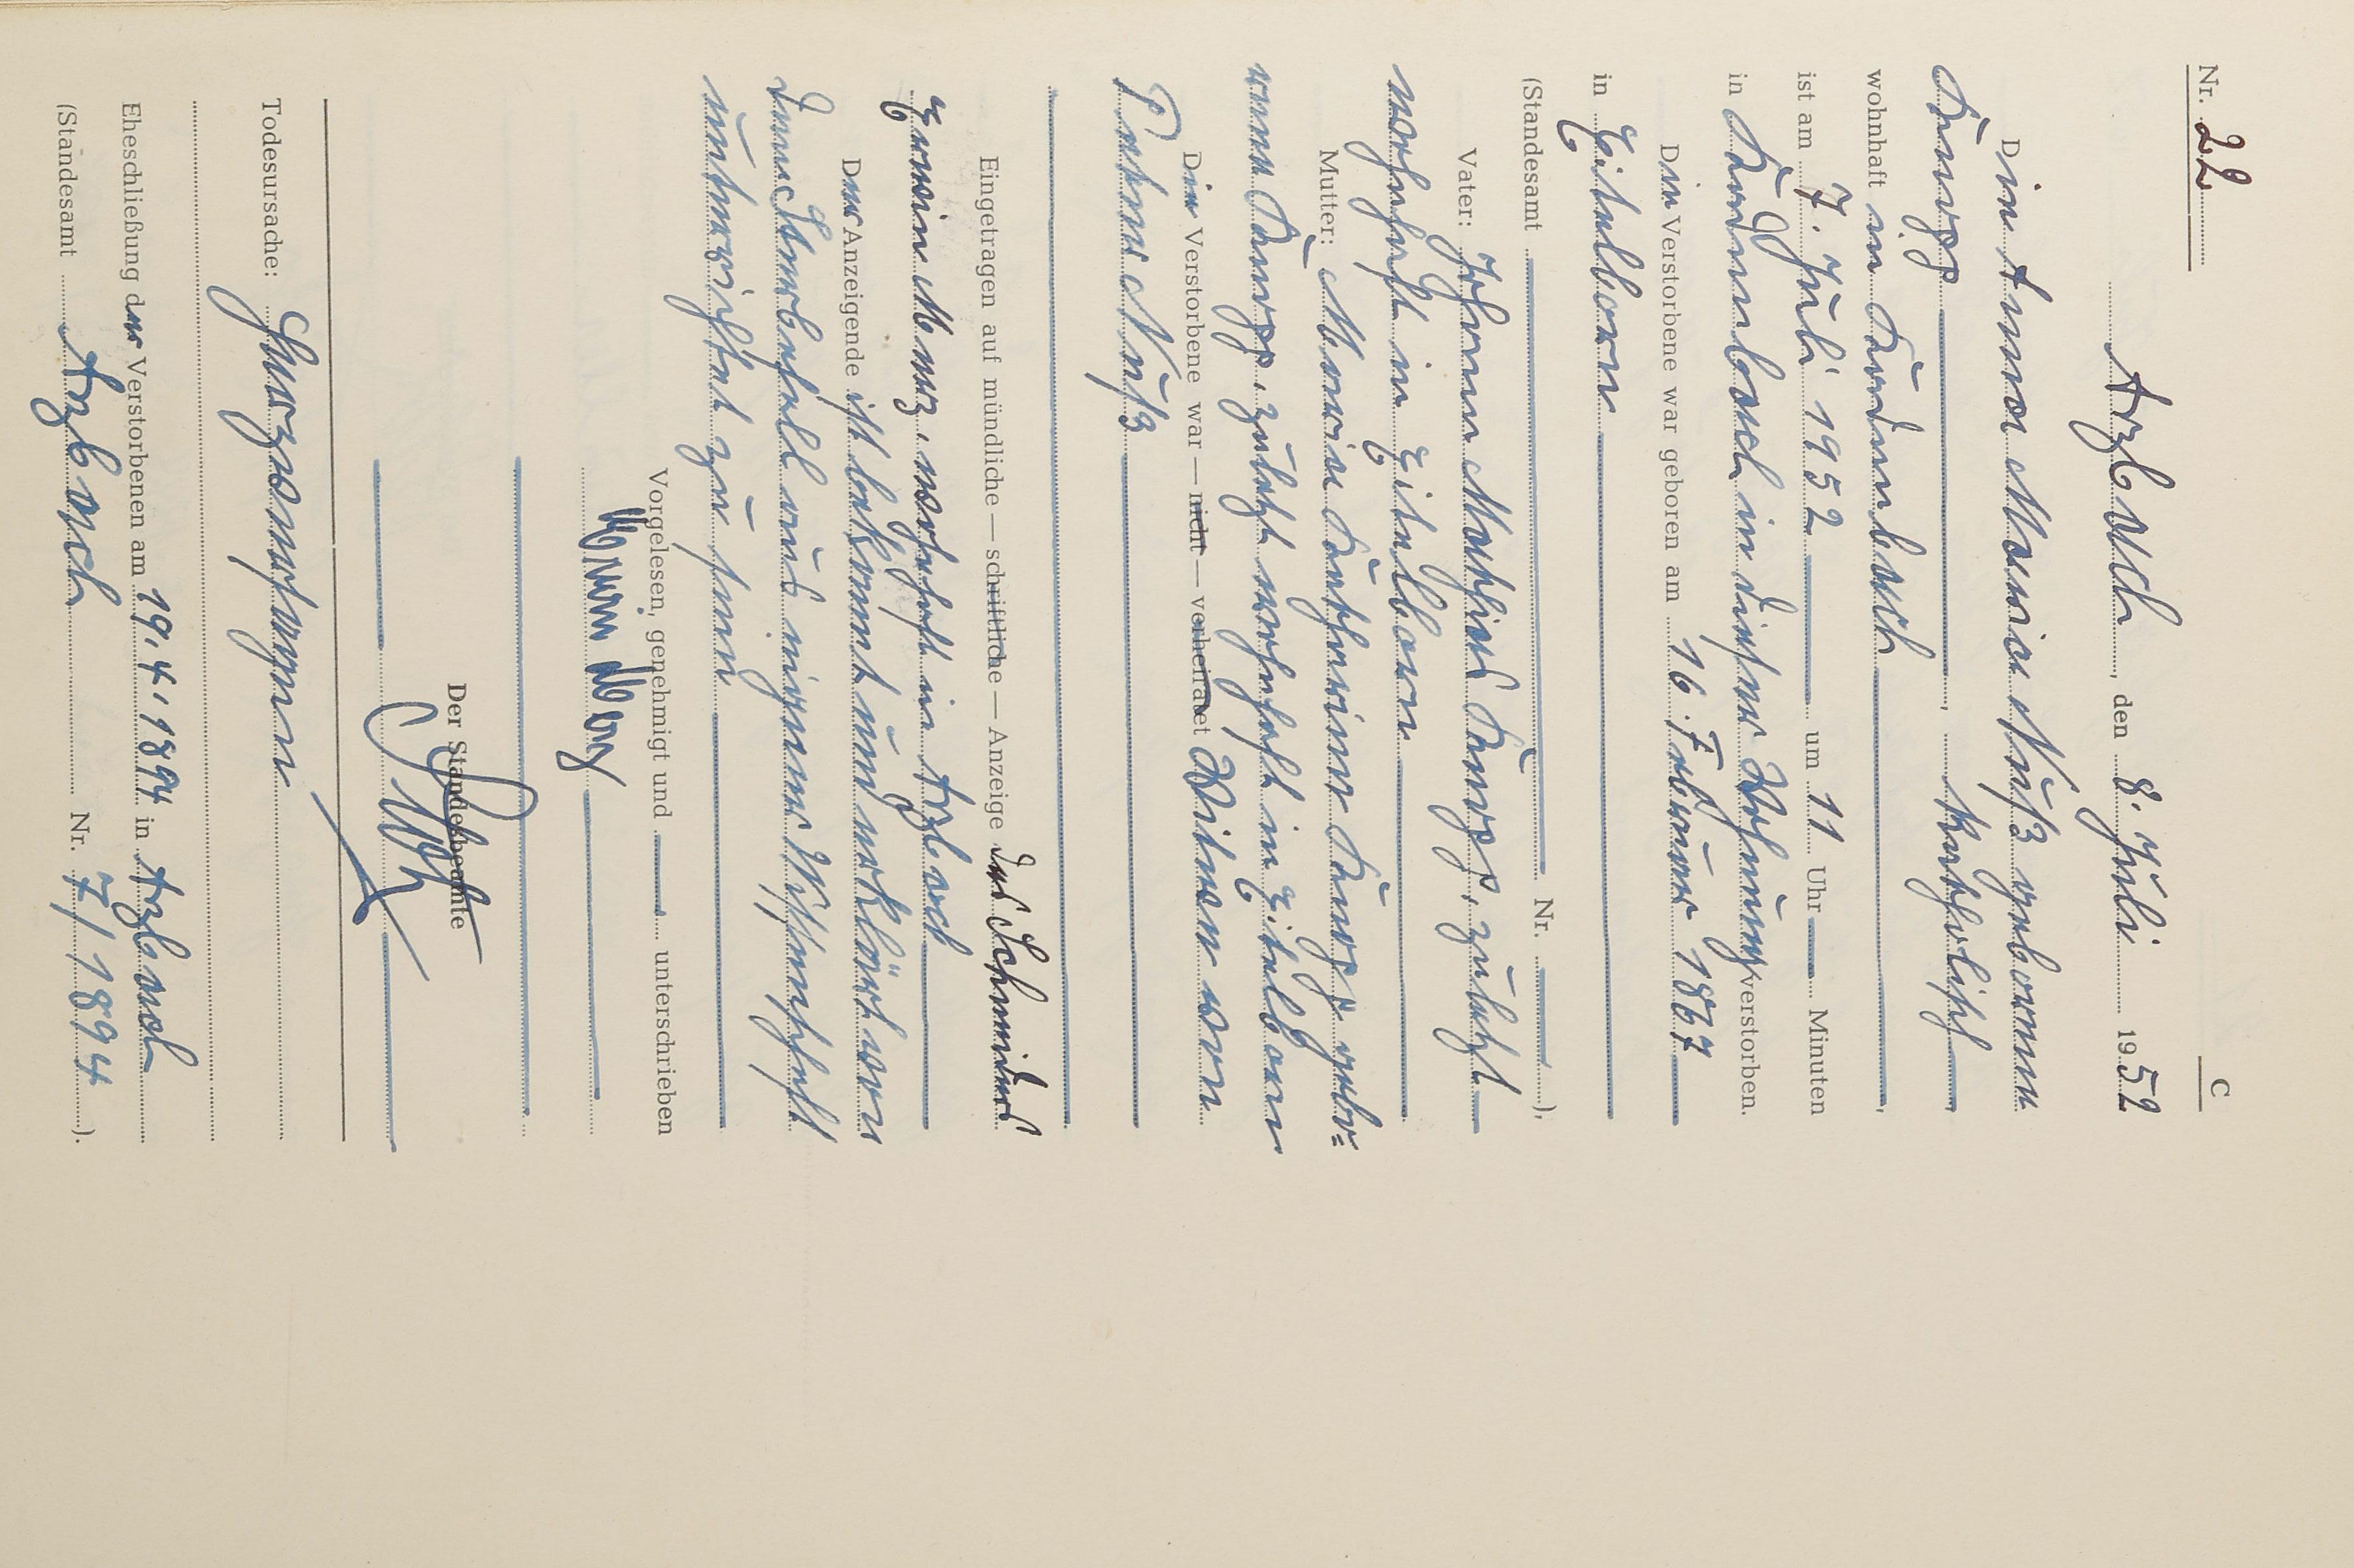 Nr. 22 C
Arzbach, den 8. Juli 1952
Die Anna Maria Nuß geborene
Knopp, katholisch
wohnhaft in Kadenbach
ist am 7. Juli 1952 um 11 Uhr Minuten
in Kadenbach in dieser Wohnung verstorben.
Die Verstorbene war geboren am 16. Februar 1867
in Eitelborn
(Standesamt Nr. ),
Vater: Johann Mathias Knopp, zuletzt
wohnhaft in Eitelborn
Mutter: Maria Katharina Knopp gebo=
rene Knopp, zuletzt wohnhaft in Eitelborn
Die Verstorbene war — nicht — verheiratet Witwe von
Peter Nuß
Eingetragen auf mündliche — schriftliche — Anzeige des Schneiders
Erwin Merz, wohnhaft in Arzbach
Der Anzeigende ist bekannt und erklärt von
dem Sterbefall aus eigener Wissenschaft
unterrichtet zu sein
Vorgelesen, genehmigt und unterschrieben
Der Standesbeamte
Todesursache: Herzversagen
Eheschließung der Verstorbenen am 19.4.1894 in Arzbach
(Standesamt Arzbach Nr. 7/1894 ).